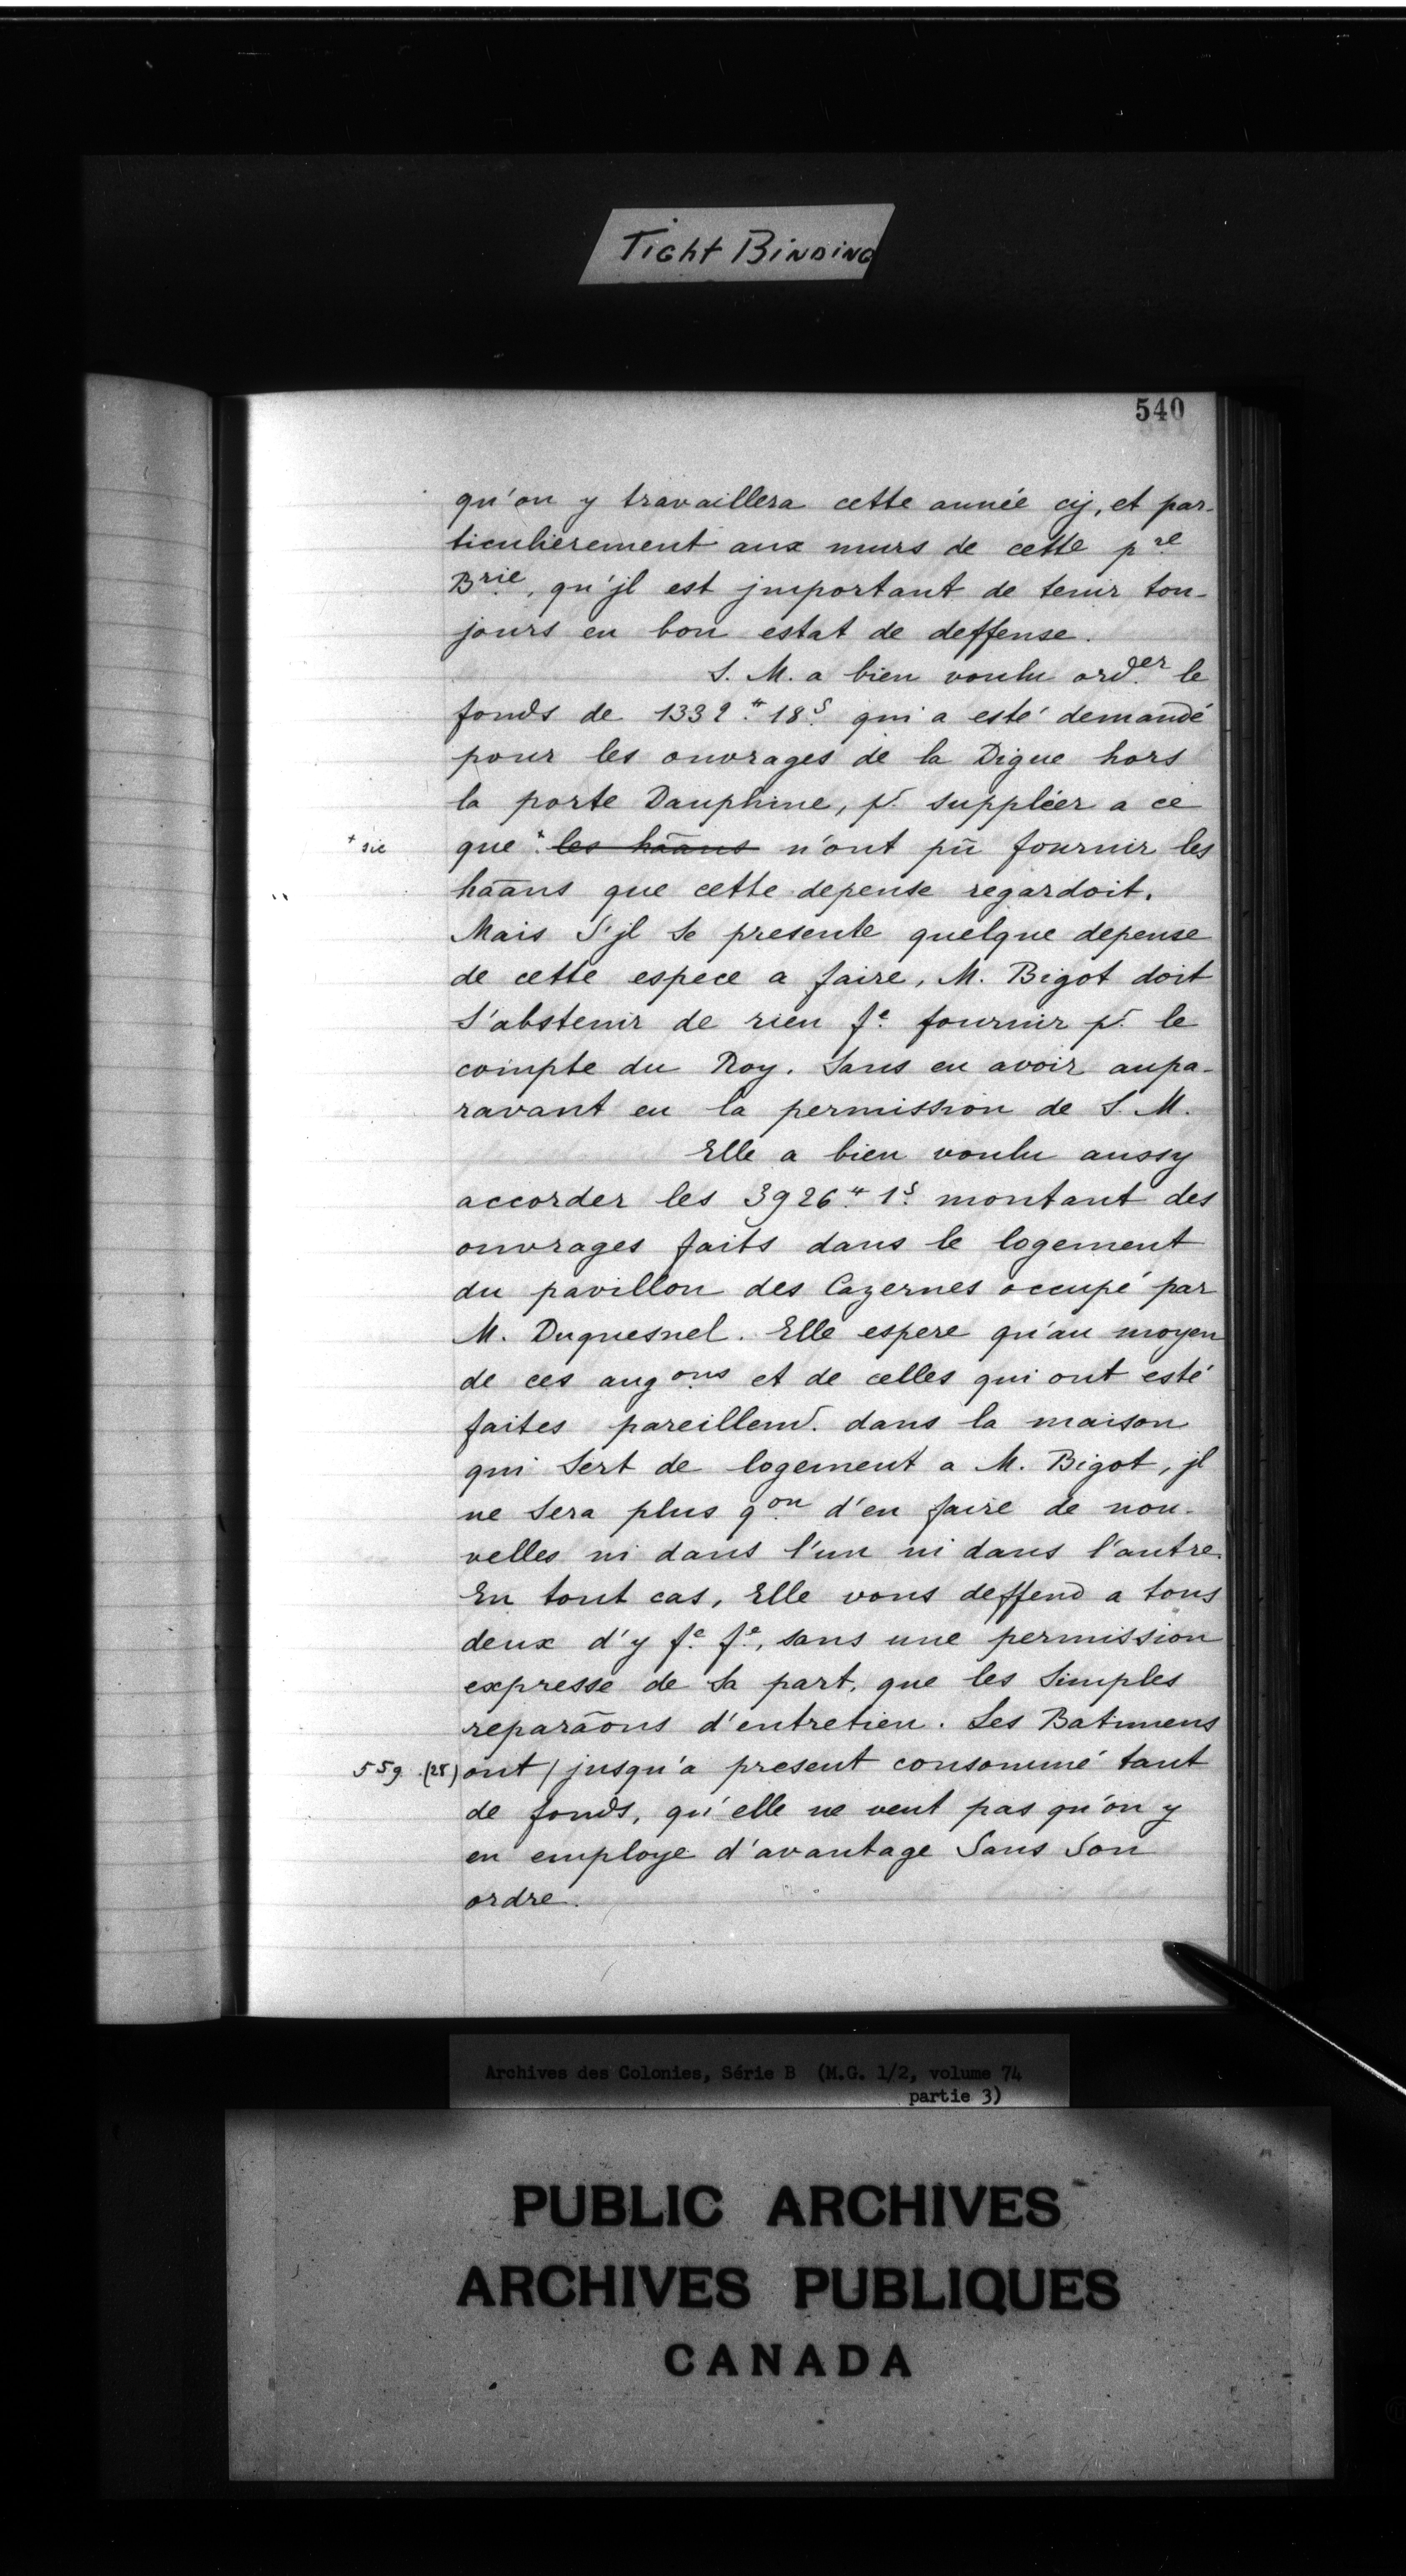 Tight Binding
540
qu'on y travaillera cette année cy, et par-
ticulierement aux murs de cette pre
Brie, qu'jl est jmportant de tenir tou-
jours en bon estat de deffense.
S. M. a bien voulu order le
fonds de 1332.# 18s qui a esté demandé
pour les ouvrages de la Digue hors
la porte Dauphine, pr suppléer a ce
+ sic que + les hãans n'ont pû fournir les
hãans que cette depense regardoit.
Mais S'jl Se presente quelque depense
de cette espece a faire, M. Bigot doit
S'abstenir de rien fe fournir pr le
compte du Roy. Sans en avoir aupa-
ravant eu la permission de S. M.
Elle a bien voulu aussy
accorder les 3926.# 1s montant des
ouvrages faits dans le logement
du pavillon des Cazernes occupé par
M. Duquesnel. Elle espere qu'au moyen
de ces augons et de celles qui ont esté
faites pareillemt. dans la maison
qui Sert de logement a M. Bigot, jl
ne Sera plus qon d'en faire de nou-
velles ni dans l'un ni dans l'autre.
En tout cas, Elle vous deffend a tous
deux d'y fe fe, sans une permission
expresse de Sa part, que les Simples
reparãons d'entretien. Les Batimens
559 .(25) ont / jusqu'a present consommé tant
de fonds, qu'elle ne veut pas qu'on y
en employe d'avantage Sans Son
ordre.
Archives des Colonies, Série B (M.G. 1/2, volume 74
partie 3)
PUBLIC ARCHIVES
ARCHIVES PUBLIQUES
CANADA